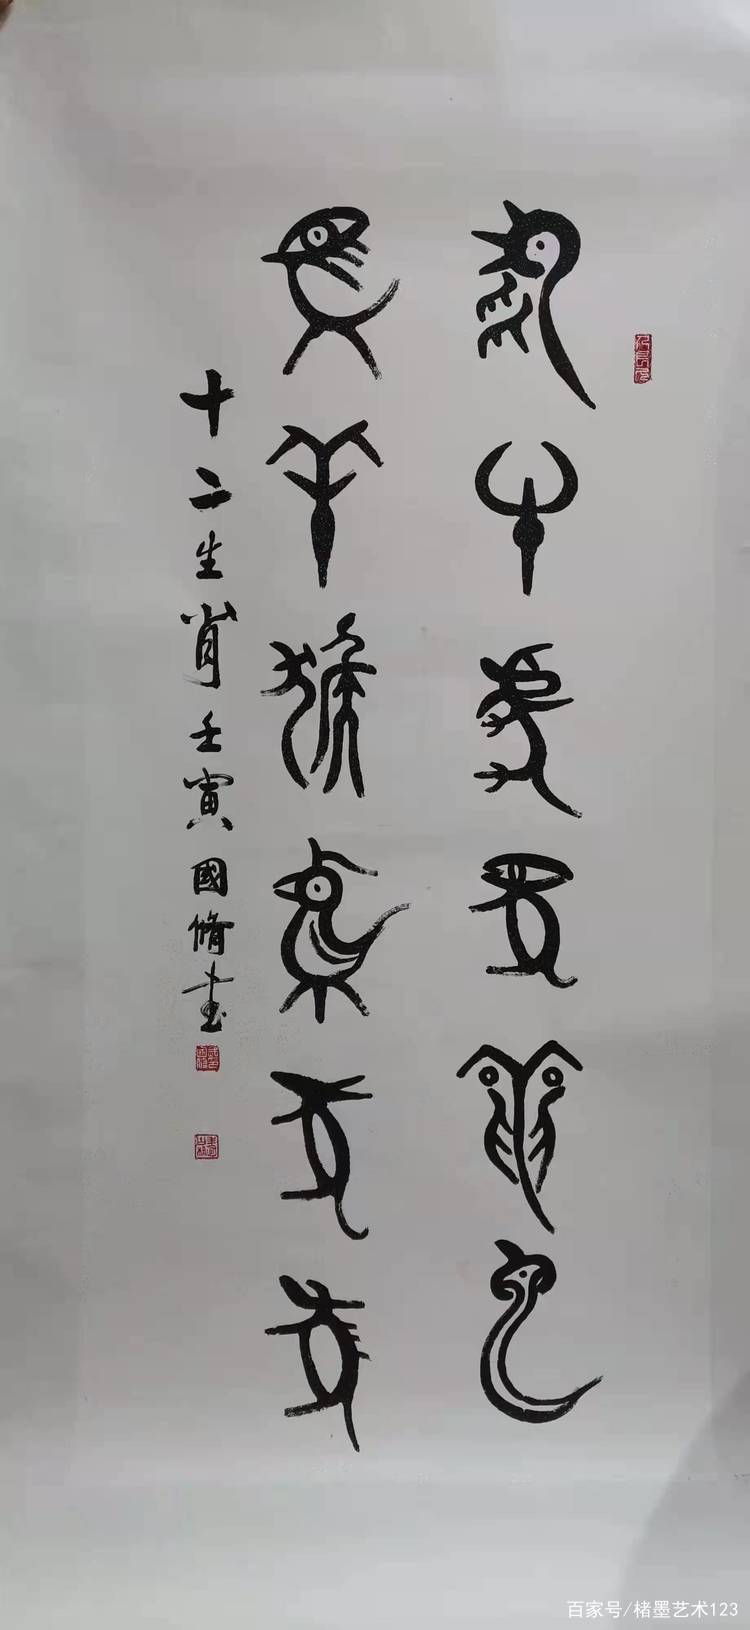 鼠牛虎兔龍蛇
馬羊猴雞犬豕
十二生肖壬寅國脩书
百家号/楮墨艺术123